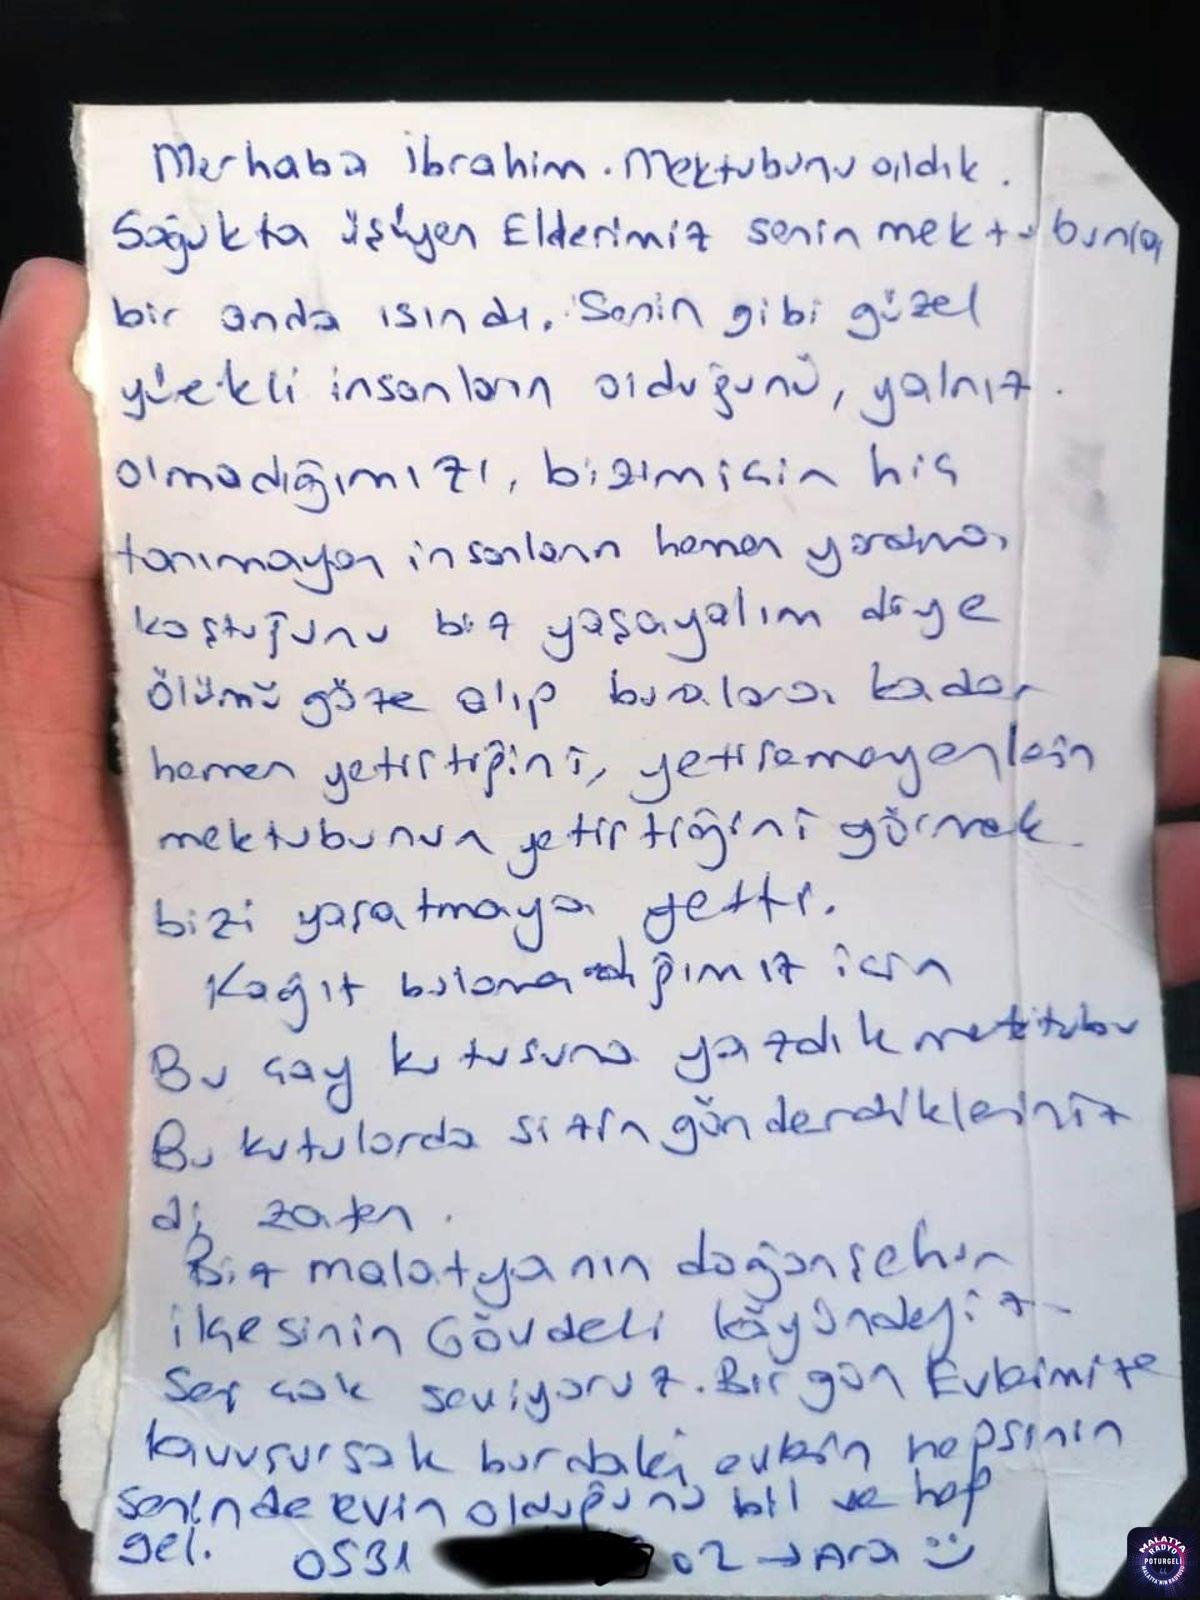 Merhaba İbrahim. Mektubunu aldık.
Soğukta üşüyen Ellerimiz senin mektubunla
bir anda ısındı. Senin gibi güzel
yürekli insanların olduğunu, yalnız
olmadığımızı, bizim için hiç
tanımayan insanların hemen yardıma
koştuğunu biz yaşayalım diye
Ölümü göze alıp buralara kadar
hemen yetiştiğini, yetişemeyenlerin
mektubunun yetiştiğini görmek
bizi yaşatmaya yetti.
Kağıt bulamadığımız için
Bu çay kutusuna yazdık mektubu
Bu kutularda sizin gönderdikleriniz
di zaten.
Biz malatyanın doğanşehir
ilçesinin Gövdeli köyündeyiz
Seni çok seviyoruz. Bir gün Evlerimize
kavuşursak burdaki evlerin hepsinin
seninde evin olduğunu bil ve hep
gel. 0531 02 → Ara :)
MALATYA
RADYO
POTURGELİ
44
MALATYA'NIN RADYOSU